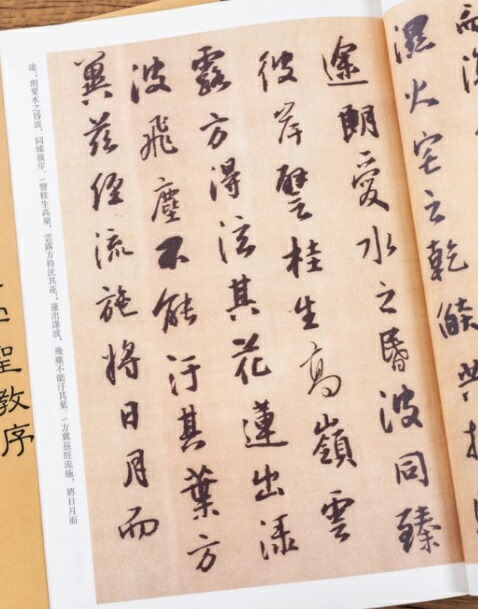 濕火宅之乾燄共拔
途朗愛水之昏波同臻
彼岸譬桂生高嶺雲
露方得泫其花蓮出淥
波飛塵不能汙其葉方
冀茲經流施將日月而
途；朗愛水之昏波，同臻彼岸。/譬桂生高嶺，雲露方得泫其花；蓮出淥波，飛塵不能汙其葉。/方冀茲經流施，將日月而
聖教序